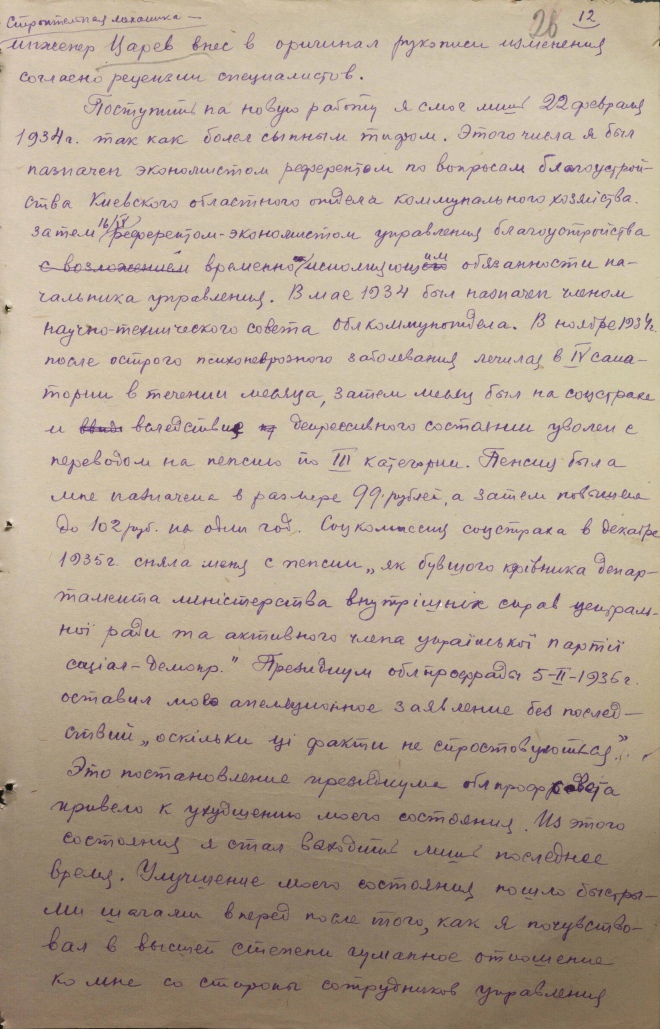 12
26
Строительная механика —
инженер Царев внес в оригинал рукописи изменения
согласно рецензии специалистов.
Поступить на новую работу я смог лишь 22 февраля
1934 г. так как болел сыпным тифом. Этого числа я был
назначен экономистом референтом по вопросам благоустрой-
ства Киевского областного отдела коммунального хозяйства.
Затем 16/IV референтом-экономистом управления благоустройства
с возложением временно исполняющим обязанности на-
чальника управления. В мае 1934 был назначен членом
научно-технического совета Облкоммунотдела. В ноябре 1934 г.
после острого психоневрозного заболевания лечился в IV сана-
тории в течении месяца, затем месяц был на соцстрахе
и вследствие депрессивного состояния уволен с
переводом на пенсию по III категории. Пенсия была
мне назначена в размере 99 рублей, а затем повышена
до 102 руб. на один год. Соцкомиссия соцстраха в декабре
1935 г. сняла меня с пенсии „як бувшого керівника депар-
тамента міністерства внутрішніх справ централь-
ної ради та активного члена української партії
соціал-демокр." Президиум облпрофрады 5-II-1936 г.
оставил мое апеляционное заявление без послед-
ствий „оскільки ці факти не спростовуються".
Это постановление президиума облпрофсовета
привело к ухудшению моего состояния. Из этого
состояния я стал выходить лишь последнее
время. Улучшение моего состояния пошло быстры-
ми шагами вперед после того, как я почувство-
вал в высшей степени гуманное отношение
ко мне со стороны сотрудников управления